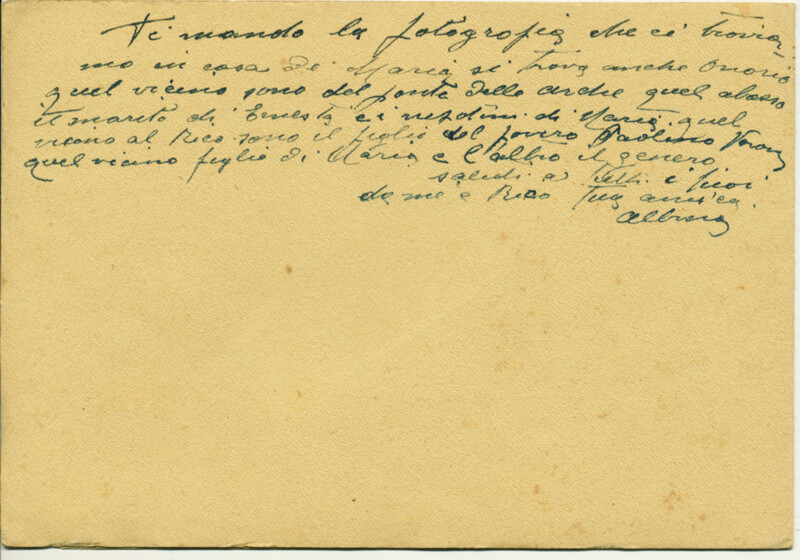 Ti mando la fotografia che ci trovia-
mo in casa di Maria si trova anche Onorio
quel vicino sono del ponte delle arche quel abasso
il marito di Ernesta e i nipotini di Maria quel
vicino al Rico sono il figlio del povero Paolino
quel vicino figlio di Maria e l'altro il genero
saluti a tutti i tuoi
da me e Rico tua amica
Albina